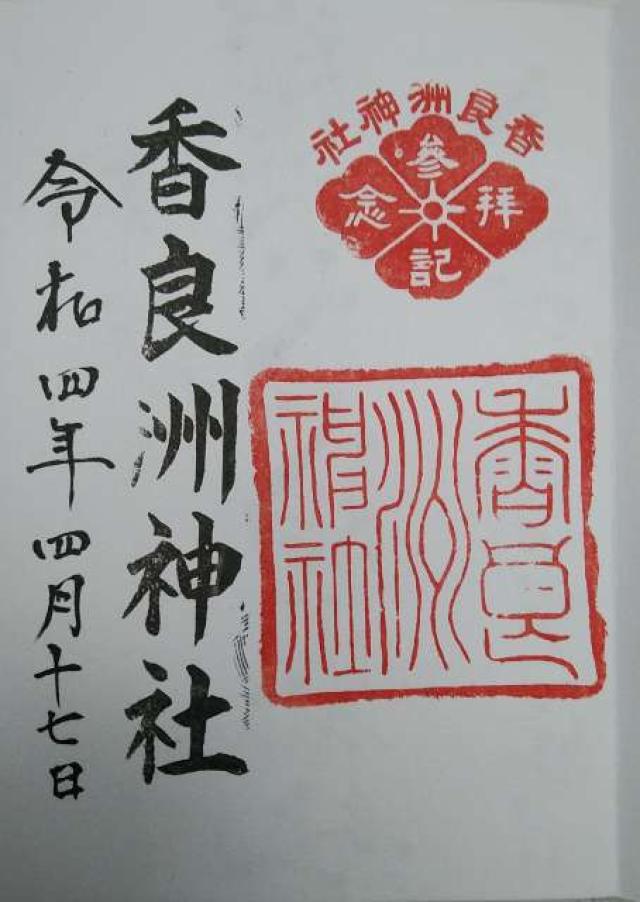 香良洲神社
參拜記念
香良洲神社
香良洲神社
令和四年四月十七日